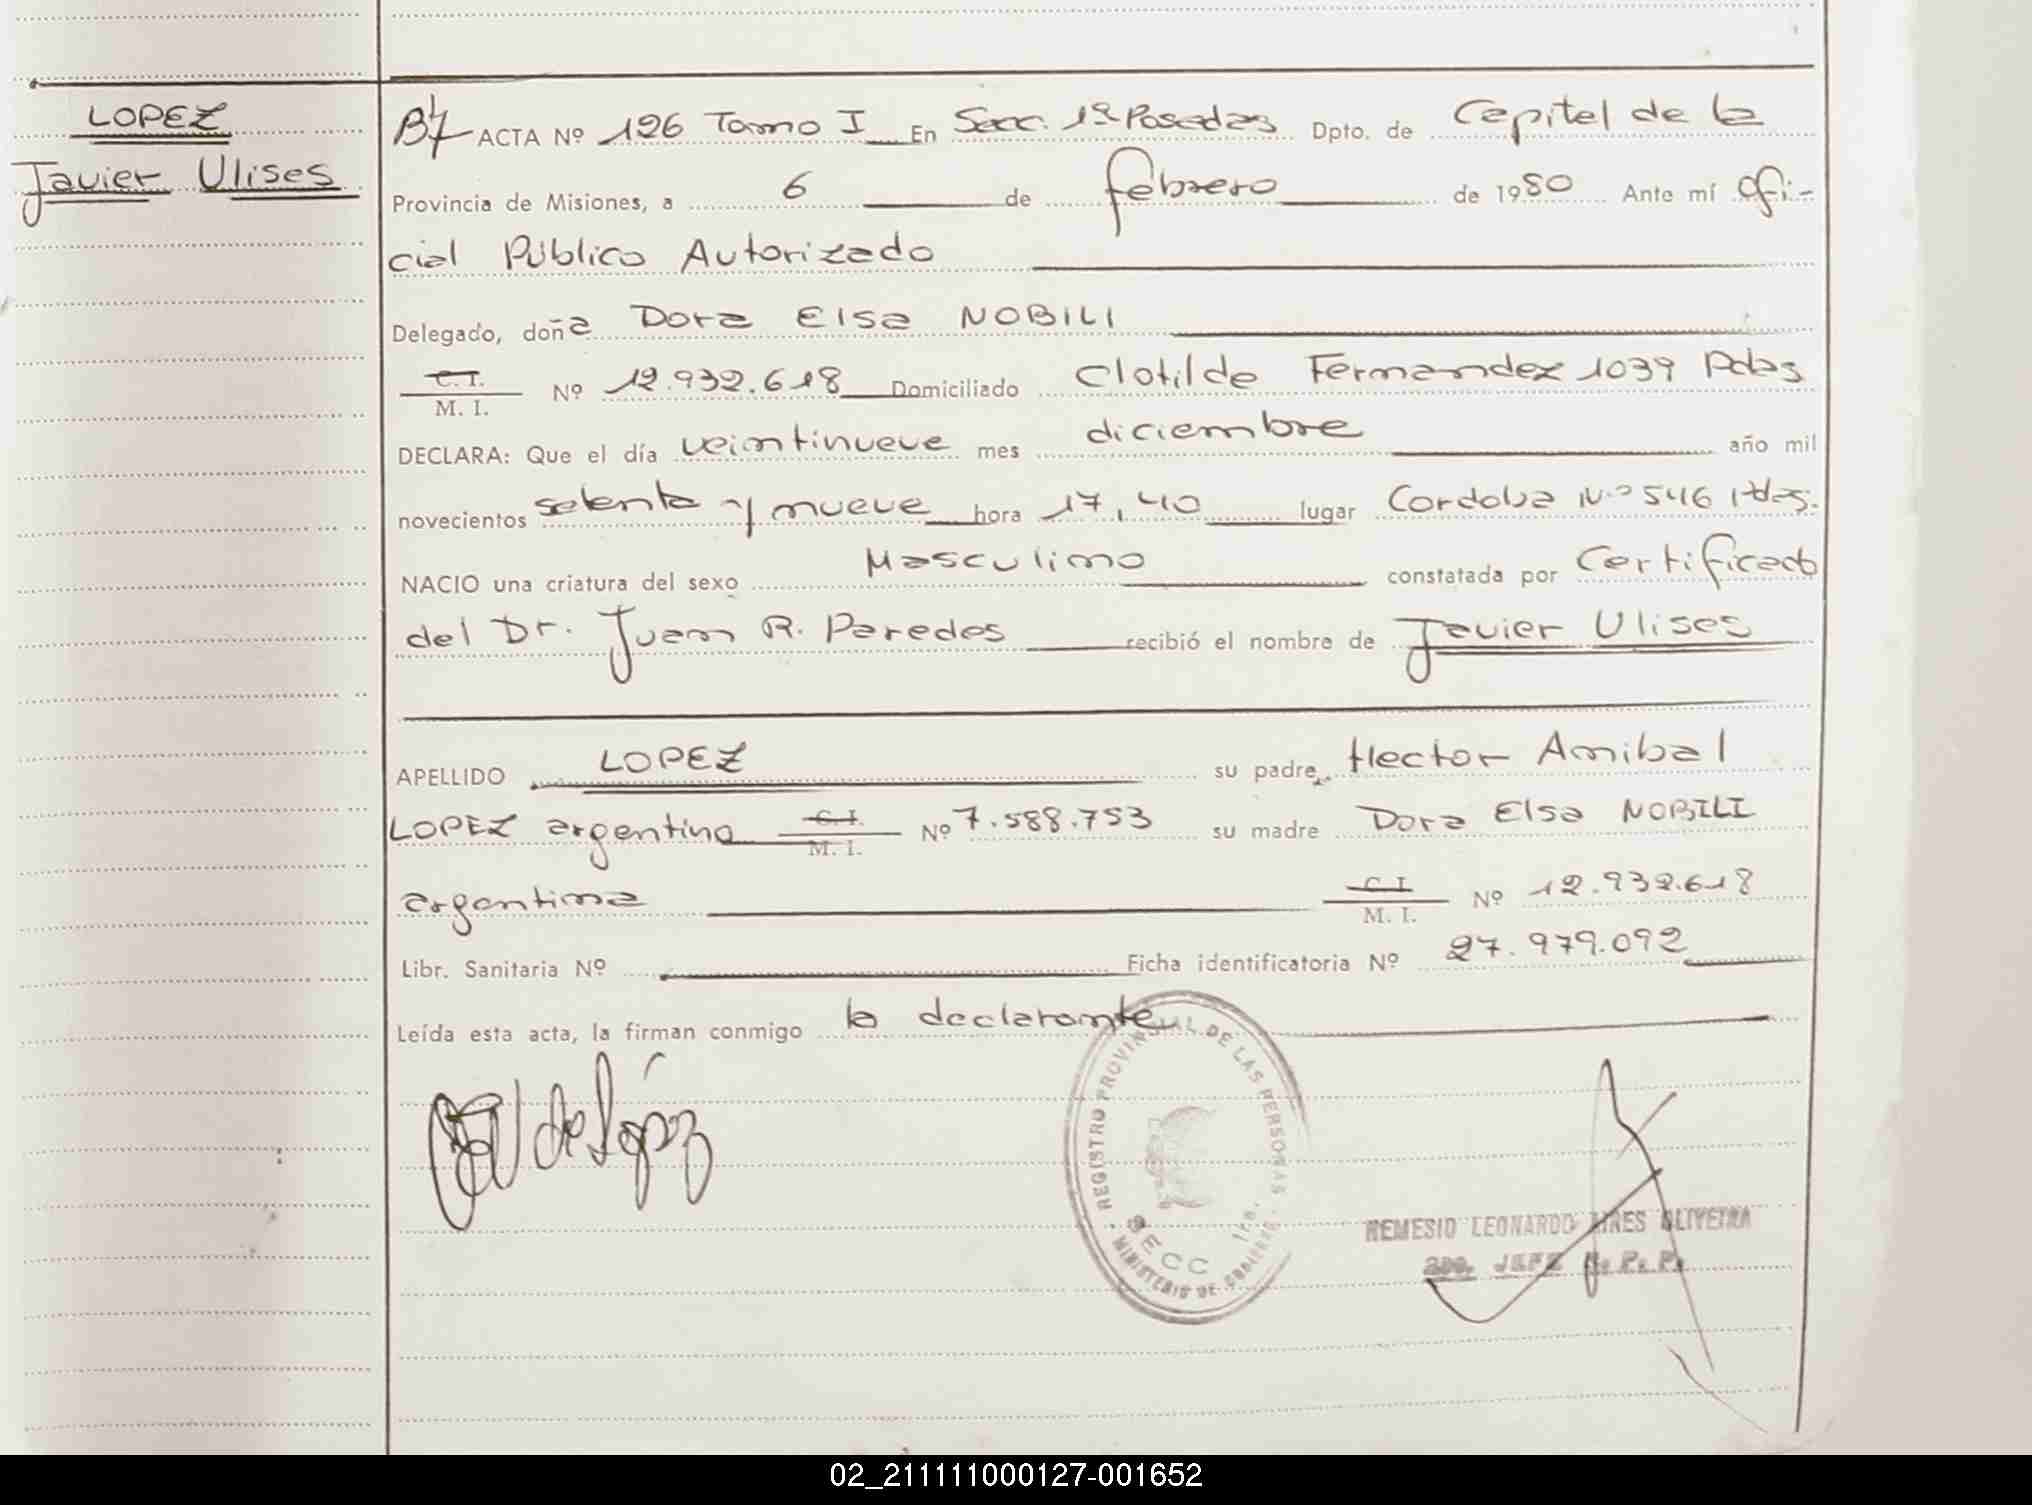 LOPEZ
Javier Ulises
ACTA Nº 126 Tomo I En Secc. 1ª Posadas Dpto. de Capital de la
Provincia de Misiones, a 6 de febrero de 1980 Ante mí Ofi-
cial Público Autorizado
Delegado, doña Dora Elsa NOBILI
C. I.
M. I. Nº 12.932.618 Domiciliado Clotilde Fernandez 1039 Pdas
DECLARA: Que el día veintinueve mes diciembre año mil
novecientos setenta y nueve hora 17,40 lugar Cordoba Nº 546 Pdas.
NACIO una criatura del sexo Masculino constatada por Certificado
del Dr. Juan R. Paredes recibió el nombre de Javier Ulises
APELLIDO LOPEZ su padre, Hector Anibal
LOPEZ argentino C. I.
M. I. Nº 7.588.753 su madre Dora Elsa NOBILI
argentina C. I.
M. I. Nº 12.932.618
Libr. Sanitaria Nº Ficha identificatoria Nº 27.979.092
Leída esta acta, la firman conmigo la declarante
de López
REGISTRO PROVINCIAL DE LAS PERSONAS
MINISTERIO DE GOBIERNO
SECC 1ra.
NEMESIO LEONARDO AIRES OLIVEIRA
2do. JEFE R. P. P.
02_211111000127-001652